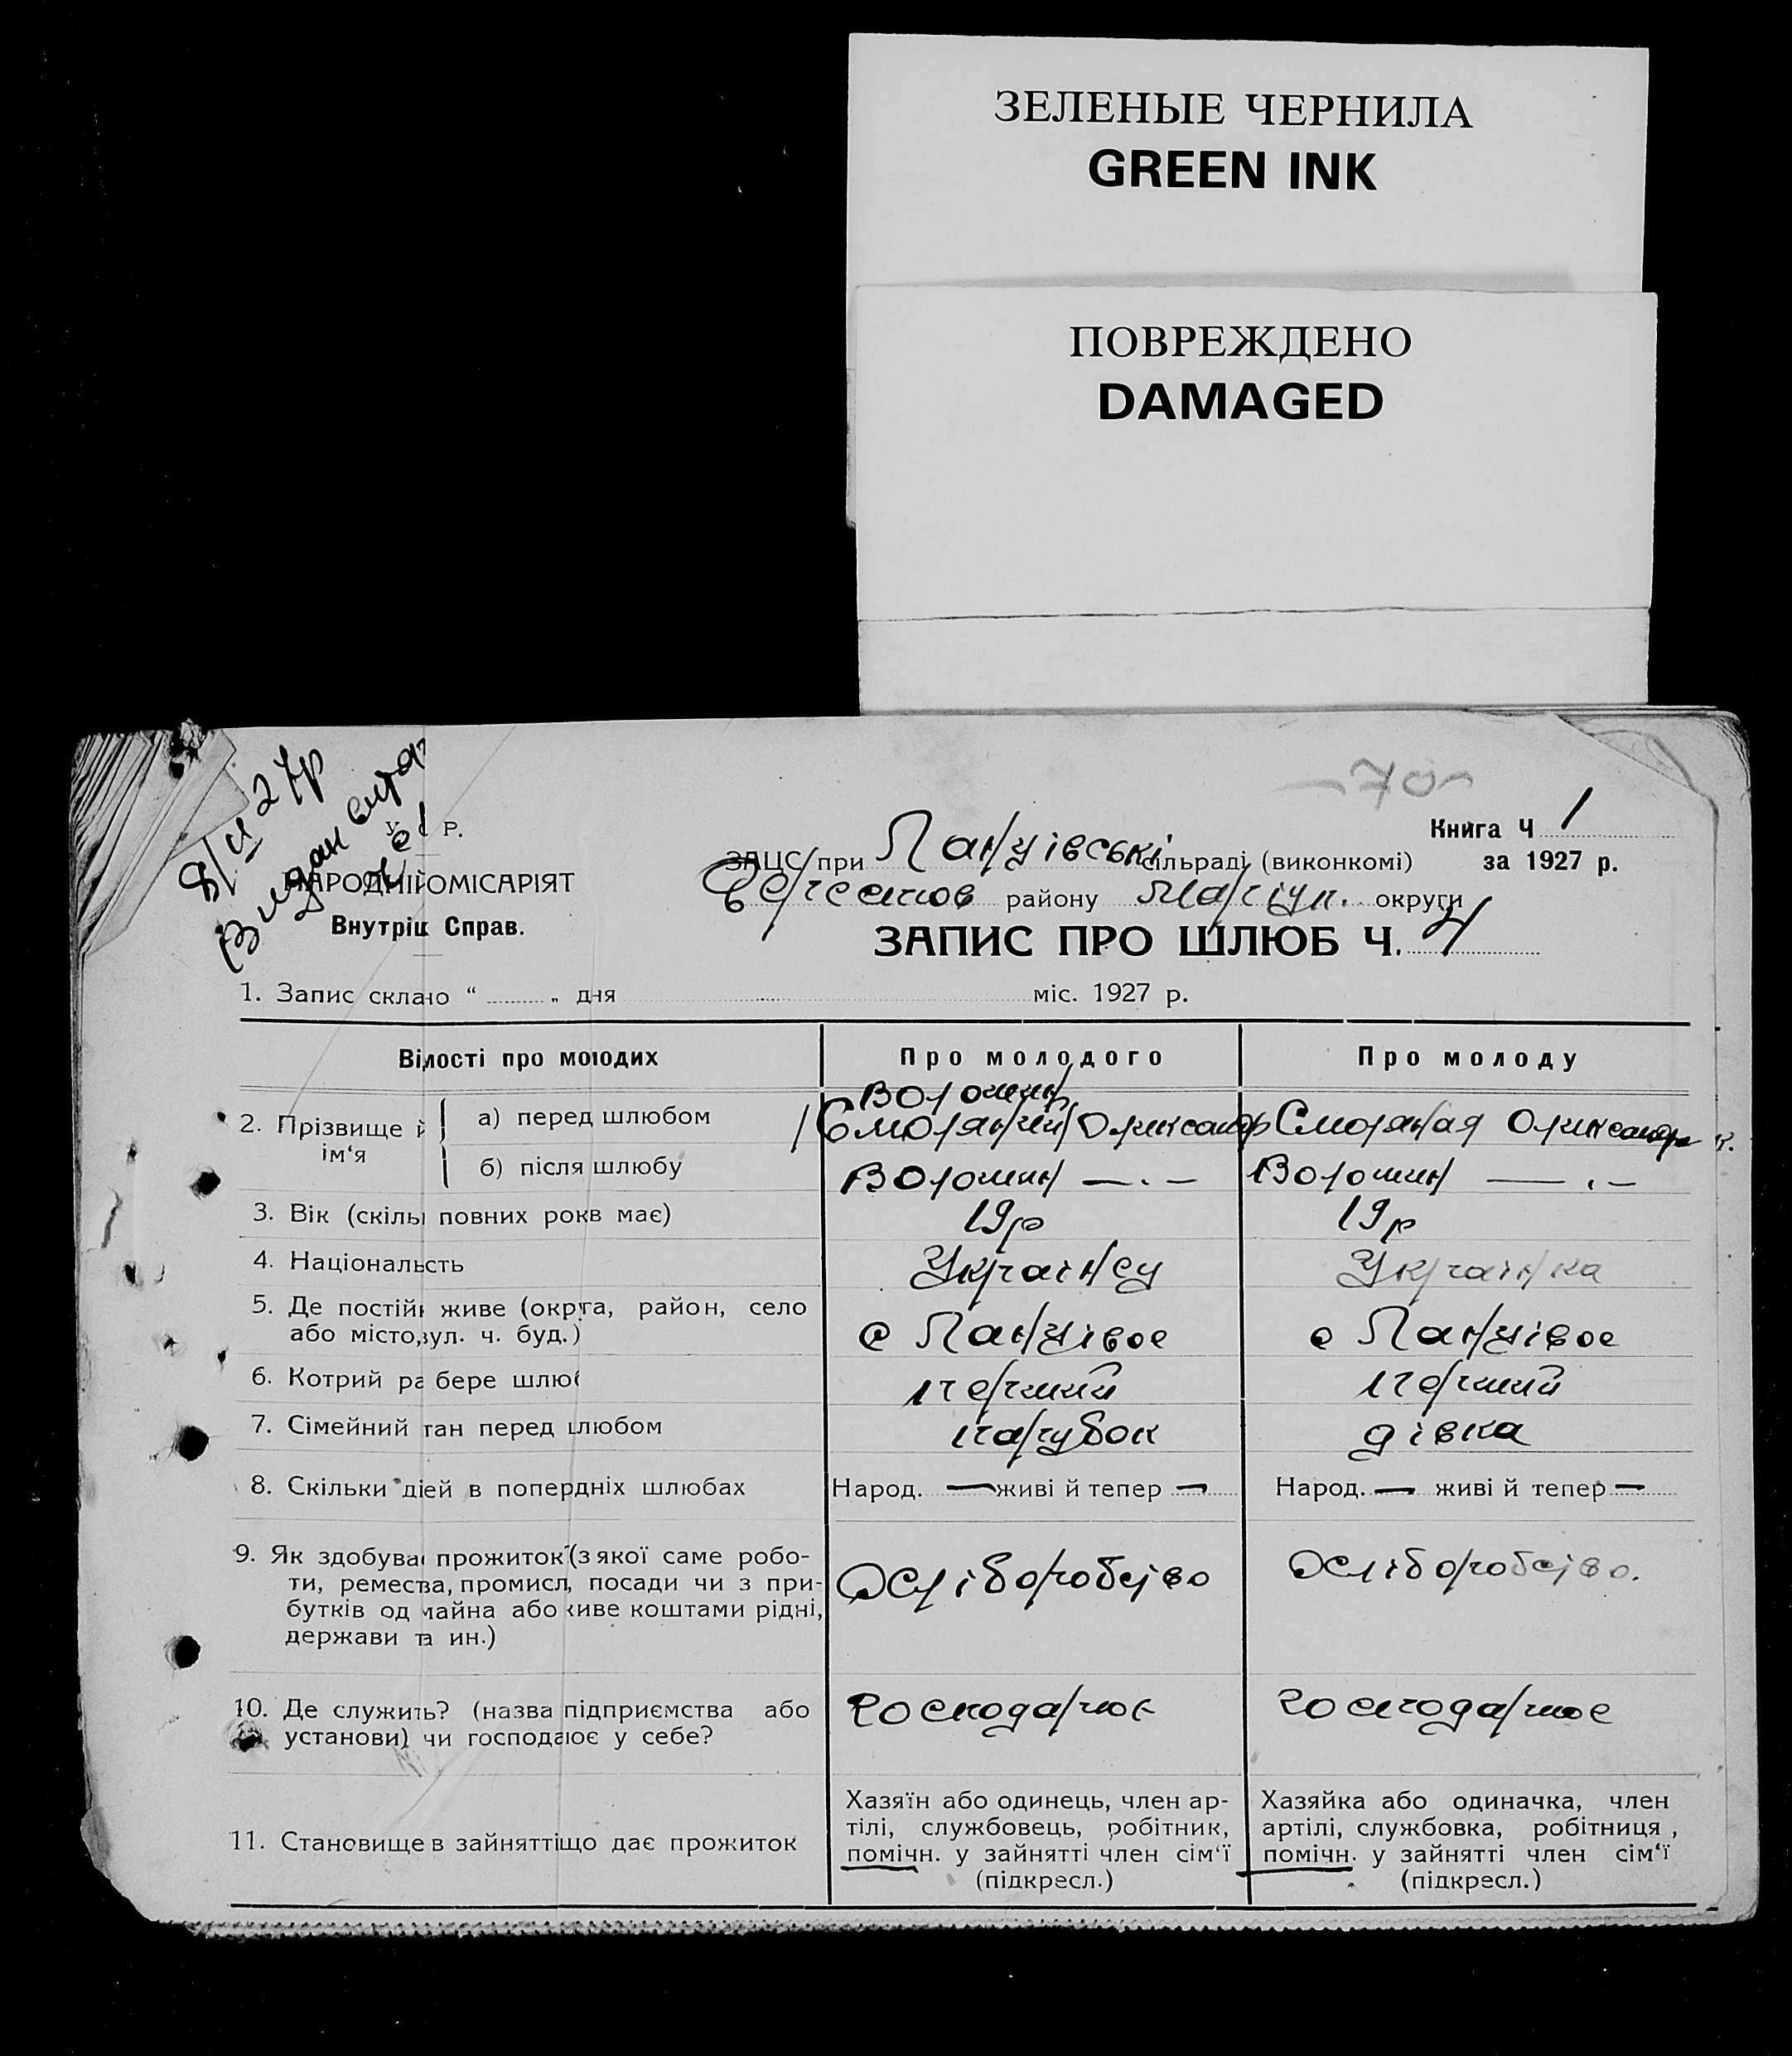 ЗЕЛЕНЫЕ ЧЕРНИЛА
GREEN INK
ПОВРЕЖДЕНО
DAMAGED
70
8/II 27р
Видан
У Р.
НАРОДНІЙ ОМІСАРІЯТ
Внутріш Справ.
Книга Ч 1
за 1927 р.
ЗАЦС при Ланцівські сільраді (виконкомі)
району Маріуп. округи
ЗАПИС ПРО ШЛЮБ Ч. 4
1. Запис склано “ „ дня міс. 1927 р.
Відості про молодих
Про молодого
Про молоду
2. Прізвище й ім‘я
а) перед шлюбом
Волошин
Смоляний Олександр
Смоляная Олександр
б) після шлюбу
Волошин — . —
Волошин — . —
3. Вік (скільк повних років має)
19р
19р
4. Національсть
Українец
Українка
5. Де постійн живе (округа, район, село
або місто, вул. ч. буд.)
с Ланцівое
с Ланцівое
6. Котрий ра бере шлюб
перший
перший
7. Сімейний тан перед шлюбом
парубок
дівка
8. Скільки дій в попердніх шлюбах
Народ. — живі й тепер —
Народ. — живі й тепер —
9. Як здобува прожиток (з якої саме робо-
ти, ремества, промисл, посади чи з при-
бутків од майна або живе коштами рідні,
держави та ин.)
хліборобство
хліборобство.
10. Де служить? (назва підприємства або
установи) чи господарює у себе?
господарює
господарює
11. Становище в зайнятті що дає прожиток
Хазяїн або одинець, член ар-
тілі, службовець, робітник,
помічн. у зайнятті член сім‘ї
(підкресл.)
Хазяйка або одиначка, член
артілі, службовка, робітниця,
помічн. у зайнятті член сім‘ї
(підкресл.)